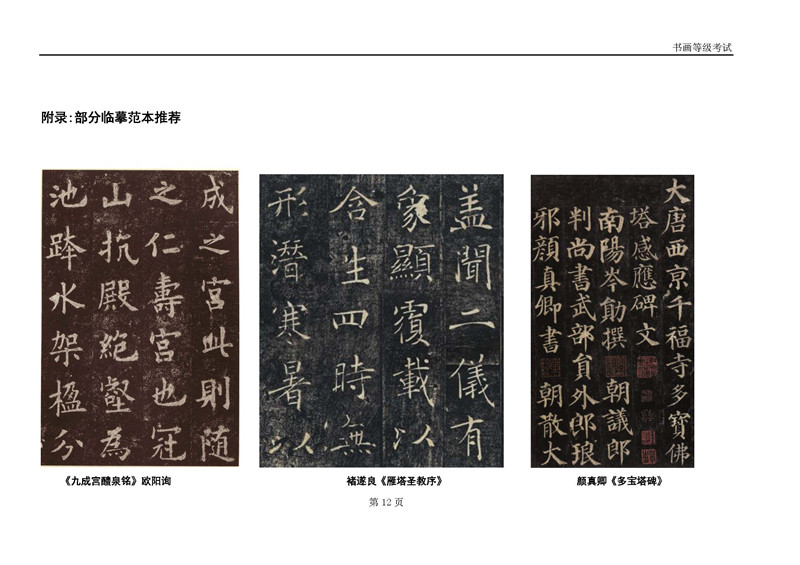 书画等级考试
附录:部分临摹范本推荐
成之宫此則随
之仁壽宫也冠
山抗殿絶壑為
池跨水架楹分
盖聞二儀有
象顯覆載以
含生四時無
形潛寒暑以
大唐西京千福寺多寶佛
塔感應碑文
南陽岑勛撰 朝議郎
判尚書武部員外郎琅
邪顔真卿書 朝散大
《九成宫醴泉铭》欧阳询
褚遂良《雁塔圣教序》
颜真卿《多宝塔碑》
第 12 页